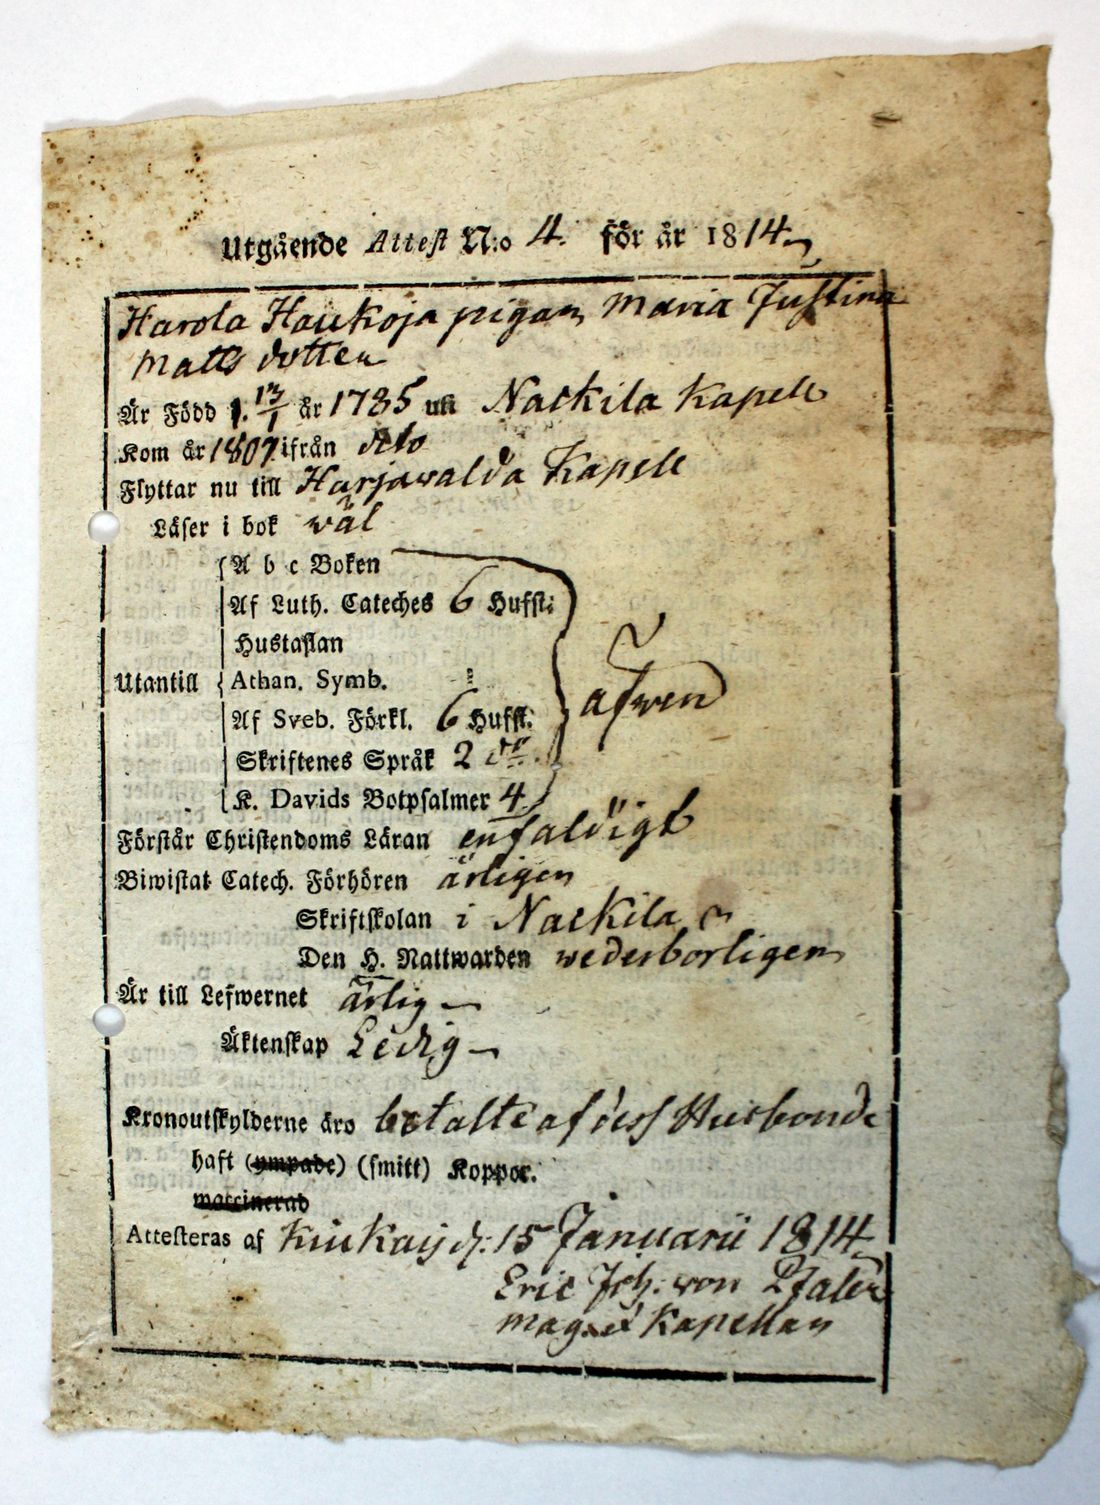 Utgående Attest N:o 4. för år 1814.
Harola Haukoja pigan Maria Justina
Matts dotter
Är Född d. 13/1 år 1785 uti Nackila Kapell
Kom år 1807 ifrån dito
Flyttar nu till Harjawalda Kapell
Läser i bok wäl
A b c Boken
Af Luth. Cateches 6 Hufst:
Hustaflan
Utantill Athan. Symb. äfwen
Af Sveb. Förkl. 6 Hufst.
Skriftenes Språk 2 do
K. Davids Botpsalmer 4
Förstår Christendoms Läran enfaldigt
Biwistat Catech. Förhören ärligen
Skriftskolan i Nackila
Den H. Nattwarden wederborligen
Är till Lefwernet ärlig
Äktenskap Ledig
Kronoutskylderne äro betalte af dess Husbonde
haft (ympade) (smitt) Koppor.
waccinerad
Attesteras af Kiukais d. 15 Januarii 1814
Eric Joh: von Pfaler
mag. et Kapellan